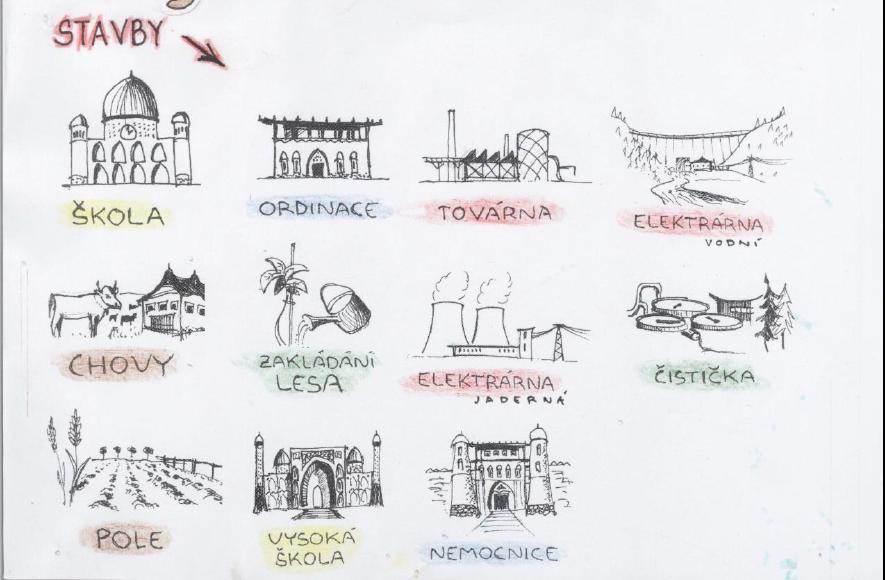 STAVBY
ŠKOLA
ORDINACE
TOVÁRNA
ELEKTRÁRNA
VODNÍ
CHOVY
ZAKLÁDÁNÍ
LESA
ELEKTRÁRNA
JADERNÁ
ČISTIČKA
POLE
VYSOKÁ
ŠKOLA
NEMOCNICE